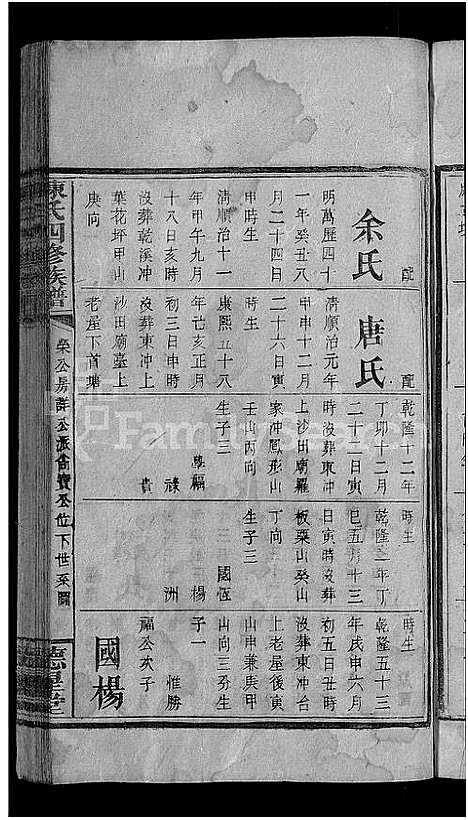 配
余氏
明萬歷四十
一年癸丑八
月二十四日
申時生
清順治十一
年甲午九月
十八日亥時
沒葬乾溪冲
葉花坪甲山
庚向
配
唐氏
清順治元年
甲申十二月
二十六日寅
時生
康熙五十八
年己亥正月
初三日申時
沒葬東冲上
沙田廟臺上
老屋下首塘
乾隆十二年
丁卯十二月
二十二日寅
時沒葬東冲
上沙田廟羅
家冲鳳形山
壬山丙向
生子三
福
祿
貴
時生
乾隆二年丁
巳五月十三
日寅時沒葬
板栗山癸山
丁向
生子三
國恆
楊
洲
時生
乾隆五十三
年戊申六月
初五日丑時
沒葬東冲台
上老屋後寅
山申兼庚甲
山向三分生
子一
惟勝
福公次子
國楊
陳氏四修族譜
榮公房詳公派
公位下世系圖
德星堂
FamilySearch